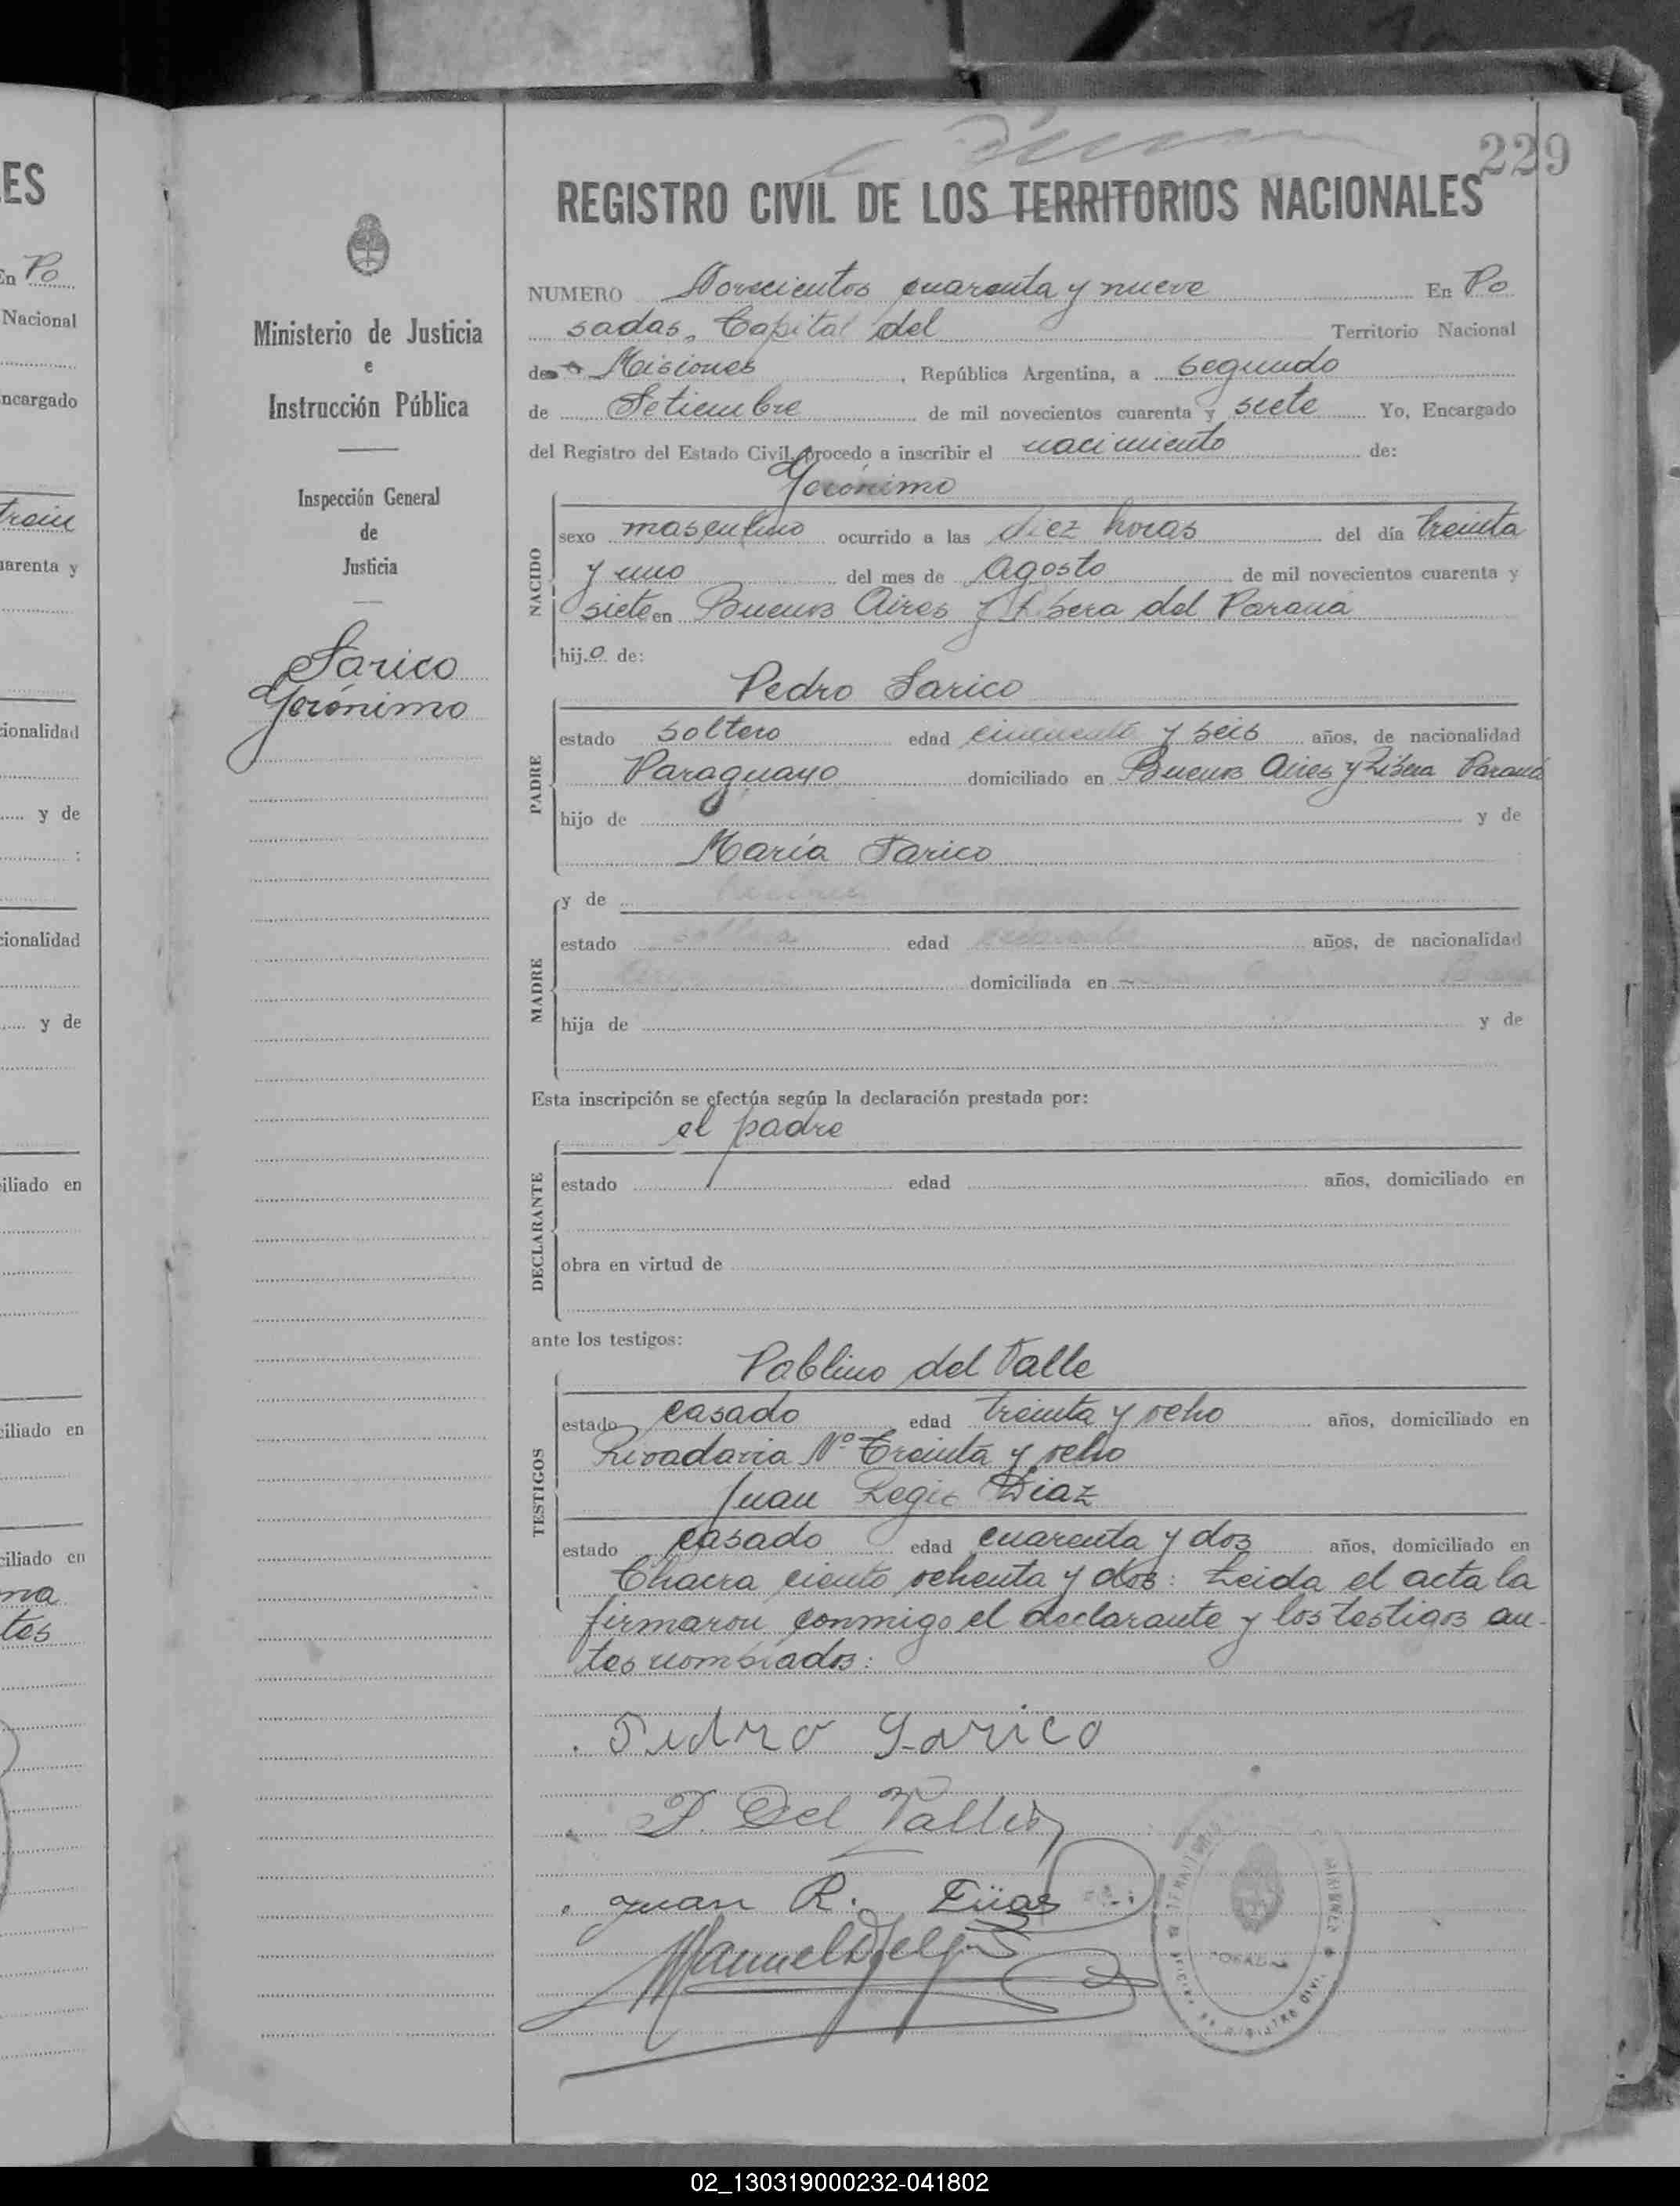 ES
En Po
Nacional
ncargado
arenta y
cionalidad
y de
cionalidad
y de
iliado en
ciliado en
ciliado en
tes
Ministerio de Justicia
e
Instrucción Pública
Inspección General
de
Justicia
Sarico
Gerónimo
229
REGISTRO CIVIL DE LOS TERRITORIOS NACIONALES
NUMERO Novecientos cuarenta y nueve En Po
sadas, Capital del Territorio Nacional
de Misiones, República Argentina, a segundo
de Setiembre de mil novecientos cuarenta y siete Yo, Encargado
del Registro del Estado Civil, procedo a inscribir el nacimiento de:
Gerónimo
NACIDO
sexo masculino ocurrido a las diez horas del día treinta
y uno del mes de Agosto de mil novecientos cuarenta y
siete en Buenos Aires y Ribera del Paraná
hijo de:
Pedro Sarico
PADRE
estado soltero edad cincuenta y seis años, de nacionalidad
Paraguayo domiciliado en Buenos Aires y Ribera Paraná
hijo de y de
María Sarico
MADRE
y de
estado soltera edad años, de nacionalidad
domiciliada en
hija de y de
Esta inscripción se efectúa según la declaración prestada por:
el padre
DECLARANTE
estado edad años, domiciliado en
obra en virtud de
ante los testigos:
Pablino del Valle
TESTIGOS
estado casado edad treinta y ocho años, domiciliado en
Rivadavia Nº Treinta y ocho
Juan Regis Diaz
estado casado edad cuarenta y dos años, domiciliado en
Chacra ciento ochenta y dos: Leida el acta la
firmaron conmigo el declarante y los testigos an-
tes nombrados:
Pedro Sarico
P. Del Valle
Juan R. Diaz
02_130319000232-041802